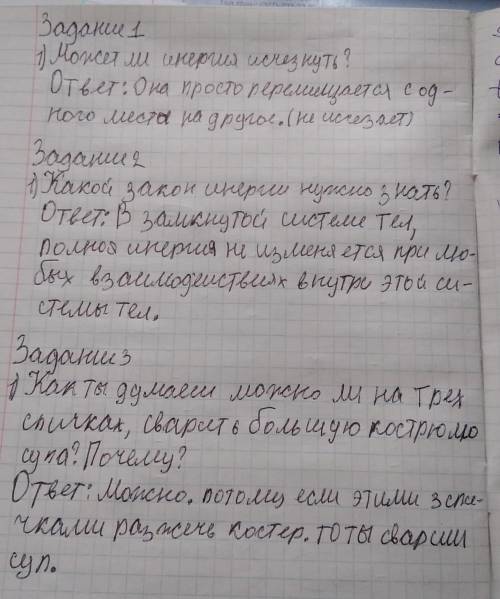 Задание 1
1) Может ли инергия исчезнуть?
Ответ: Она просто перемищается с од-
ного места на другое. (не исчезает)
Задание 2
1) Какой закон инергии нужно знать?
Ответ: В замкнутой системе тел,
полноя инергия не изменяется при лю-
бых взаимодействиях внутри этой си-
стемы тел.
Задание 3
1) Как ты думаеш можно ли на трех
спичках, сварить большую кострюлю
супа? Почему?
Ответ: Можно. потому если этими 3 спи-
чками разжечь костер. то ты свариш
суп.